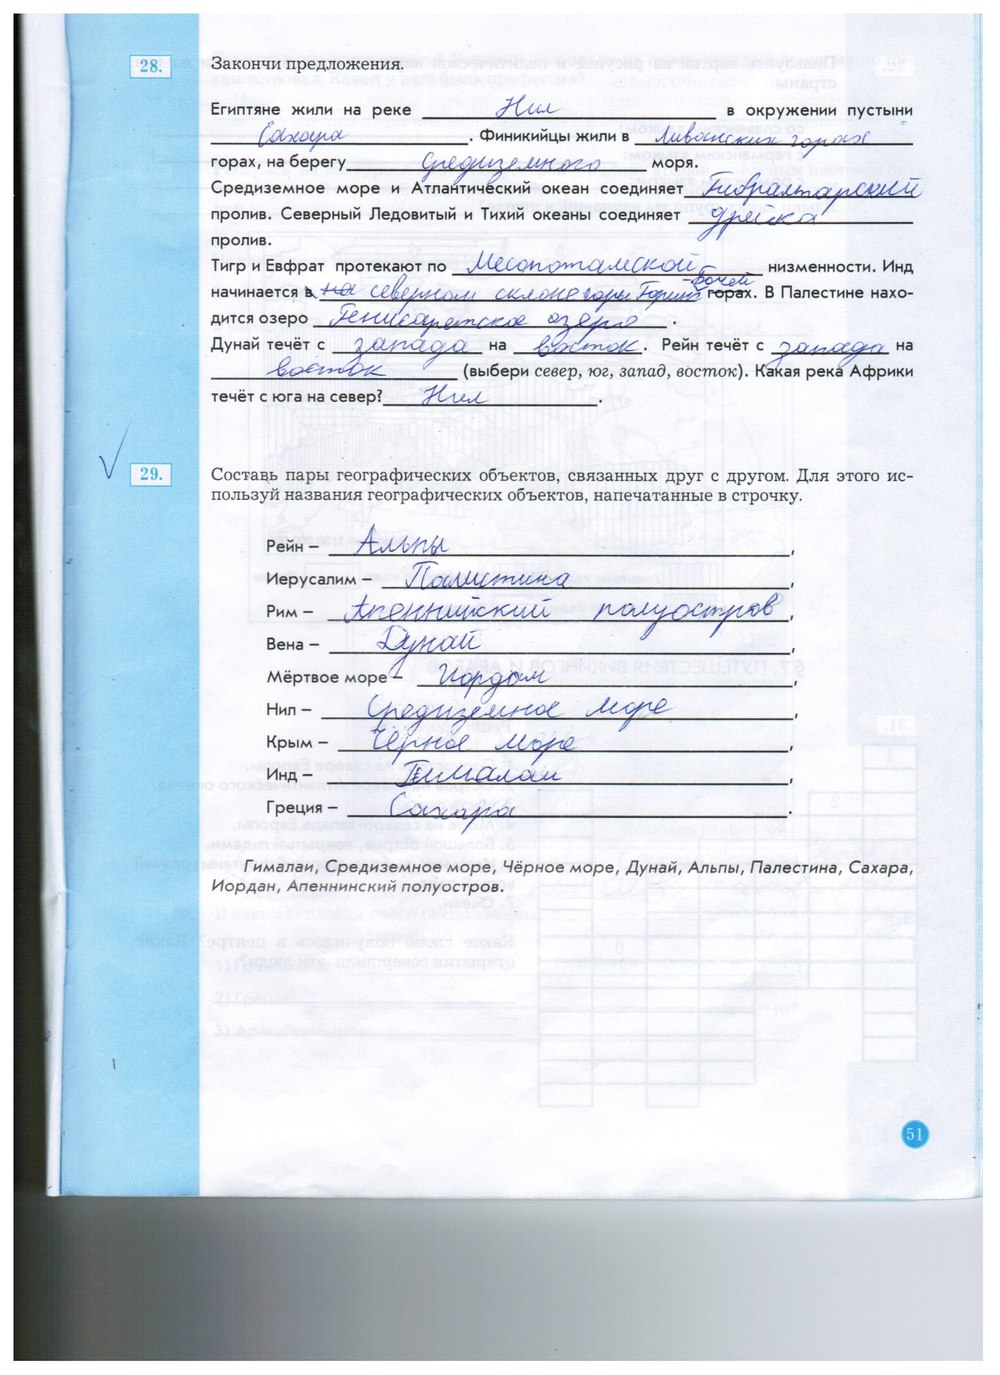 28. Закончи предложения.
Египтяне жили на реке Нил в окружении пустыни
Сахара. Финикийцы жили в Ливанских горах
горах, на берегу Средиземного моря.
Средиземное море и Атлантический океан соединяет Гибралтарский
пролив. Северный Ледовитый и Тихий океаны соединяет Дрейка
пролив.
Тигр и Евфрат протекают по Месопотамской низменности. Инд
начинается в на северном склоне горы горах. В Палестине нахо-
дится озеро Генисаретское озеро.
Дунай течёт с запада на восток. Рейн течёт с запада на
восток (выбери север, юг, запад, восток). Какая река Африки
течёт с юга на север? Нил.
29. Составь пары географических объектов, связанных друг с другом. Для этого ис-
пользуй названия географических объектов, напечатанные в строчку.
Рейн – Альпы,
Иерусалим – Палистина,
Рим – Апеннийский полуостров,
Вена – Дунай,
Мёртвое море – Иордан,
Нил – Средиземное море,
Крым – Чёрное море,
Инд – Гималаи,
Греция – Сахара.
Гималаи, Средиземное море, Чёрное море, Дунай, Альпы, Палестина, Сахара,
Иордан, Апеннинский полуостров.
51